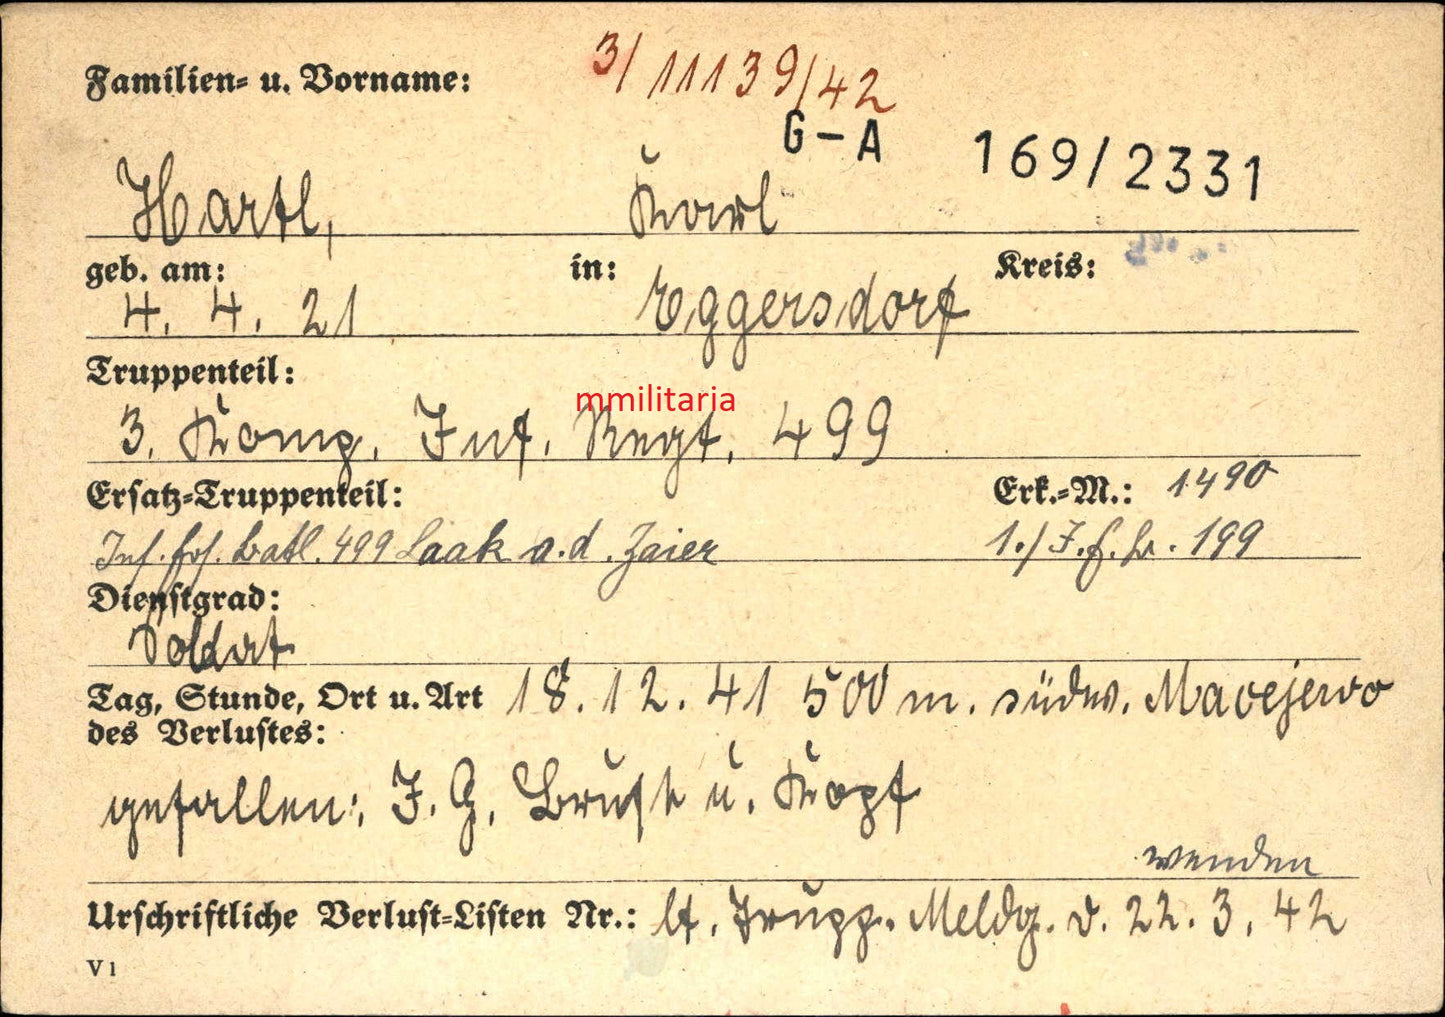 Familien- u. Vorname:
3/11139/42
G-A 169/2331
Hartl, Karl
geb. am: in: Kreis:
4. 4. 21 Eggersdorf
Truppenteil:
mmilitaria
3. Komp. Inf. Regt. 499
Ersatz-Truppenteil: Erk.-M.: 1490
Inf. Ers. Batl. 499 Laak a.d. Zaier 1./I.E.B. 199
Dienstgrad:
Soldat
Tag, Stunde, Ort u. Art 18. 12. 41 500 m. südw. Macejewo
des Verlustes:
gefallen: I. G. Brust u. Kopf
wenden
Urschriftliche Verlust-Listen Nr.: lt. Trupp. Meldg. v. 22. 3. 42
V 1